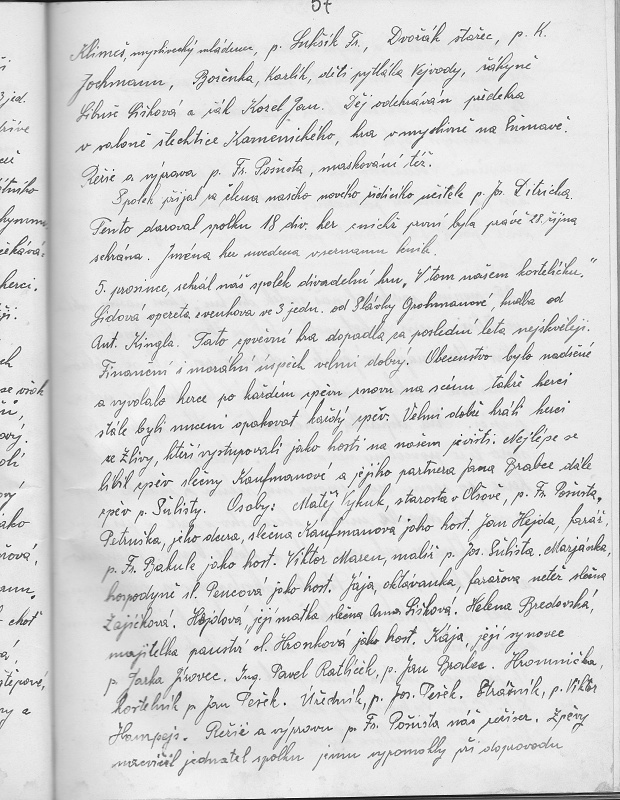 57
Klimeš, myslivecký mládenec, p. Lukšík Fr., Dvořák stařec, p. K.
Jochmann, Boženka, Karlík, děti pytláka Vejvody, žákyně
Libuše Lišková a žák Kozel Jan. Děj odehráván předehra
v saloně šlechtice Kamenického, hra v myslivně na Šumavě.
Režie a výprava p. Fr. Pošusta, maskování též.
Spolek přijal za člena našeho nového řídícího učitele p. Jos. Ditricha.
Tento daroval spolku 18 div. her z nichž první byla právě 28. října
sehrána. Jména her uvedena v seznamu knih.
5. prosince, sehrál náš spolek divadelní hru, V tom našem kostelíčku,"
Lidová opereta z venkova ve 3 jedn. od Slávky Grohmanové, hudba od
Ant. Kingla. Tato zpěvní hra dopadla za poslední léta nejskvěleji.
Financení i morální úspěch velmi dobrý. Obecenstvo bylo nadšené
a vyvolalo herce po každém zpěvu znovu na scénu takže herci
stále byli nuceni opakovat každý zpěv. Velmi dobře hráli herci
ze Žlivy, kteří vystupovali jako hosti na našem jevišti. Nejlépe se
líbil zpěv slečny Kaufmanové a jejího partnera Jana Bradce dále
zpěv p. Šulisty. Osoby: Matěj Vykuk, starosta v Olšově, p. Fr. Pošusta,
Petruška, jeho dcera, slečna Kaufmanová jako host. Jan Hejda, farář,
p. Fr. Bakule jako host. Viktor Mareu, malíř p. Jos. Šulista. Marjánka,
hospodyně sl. Pencová jako host. Jája, oktávanka, farářova neteř slečna
Zajíčková. Hejdová, její matka slečna Anna Lišková. Helena Bredovská,
majitelka panství sl. Hronková jako host. Kája, její synovec
p. Jarka Jírovec. Ing. Pavel Ratlíček, p. Jan Bradec. Hromnička,
kostelník p. Jan Pešek. Úředník, p. Jos. Pešek. Strážník, p. Viktor
Hampejs. Režie a výprava p. Fr. Pošusta náš režiser. Zpěvy
nacvičil jednatel spolku jemu vypomohly při doprovodu